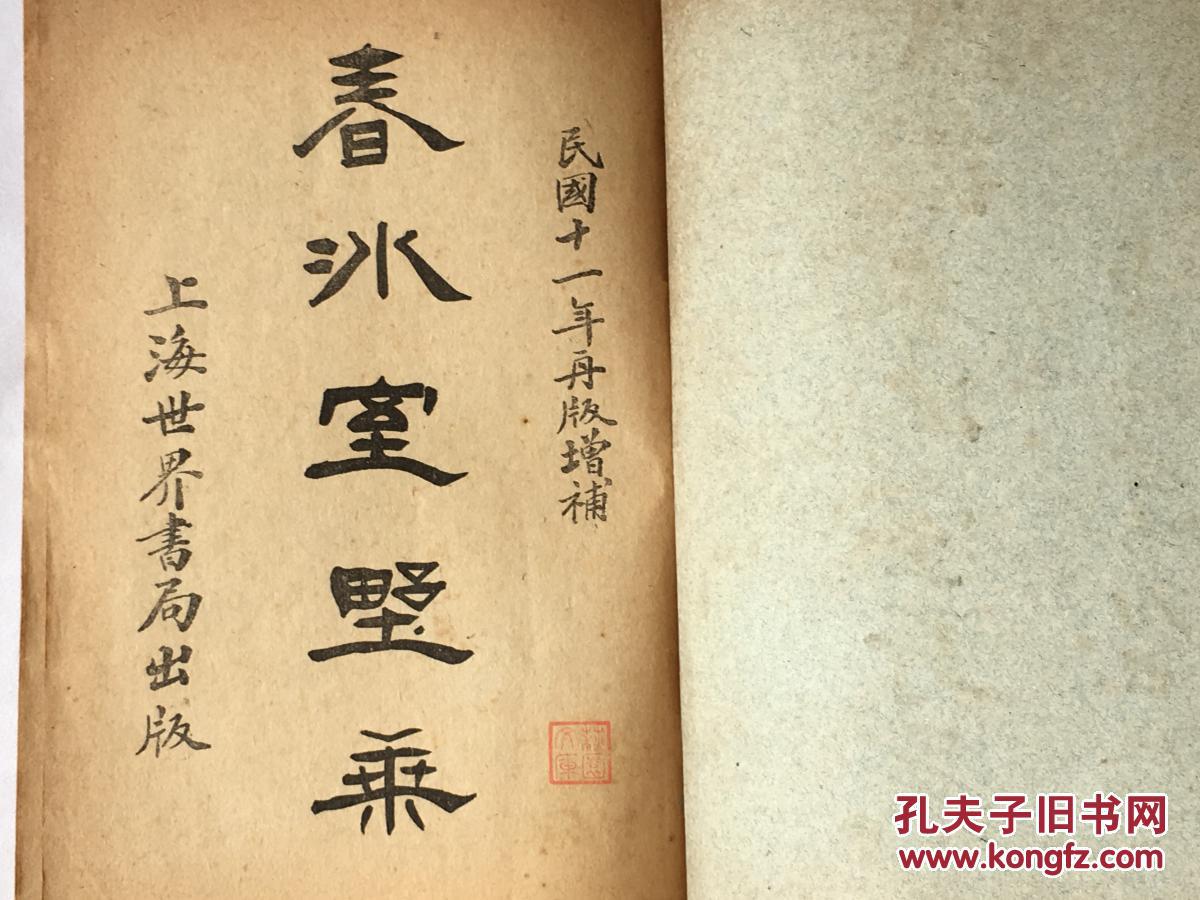 民國十一年再版增補
春冰室墅乘
上海世界書局出版
孔夫子旧书网
www.kongfz.com